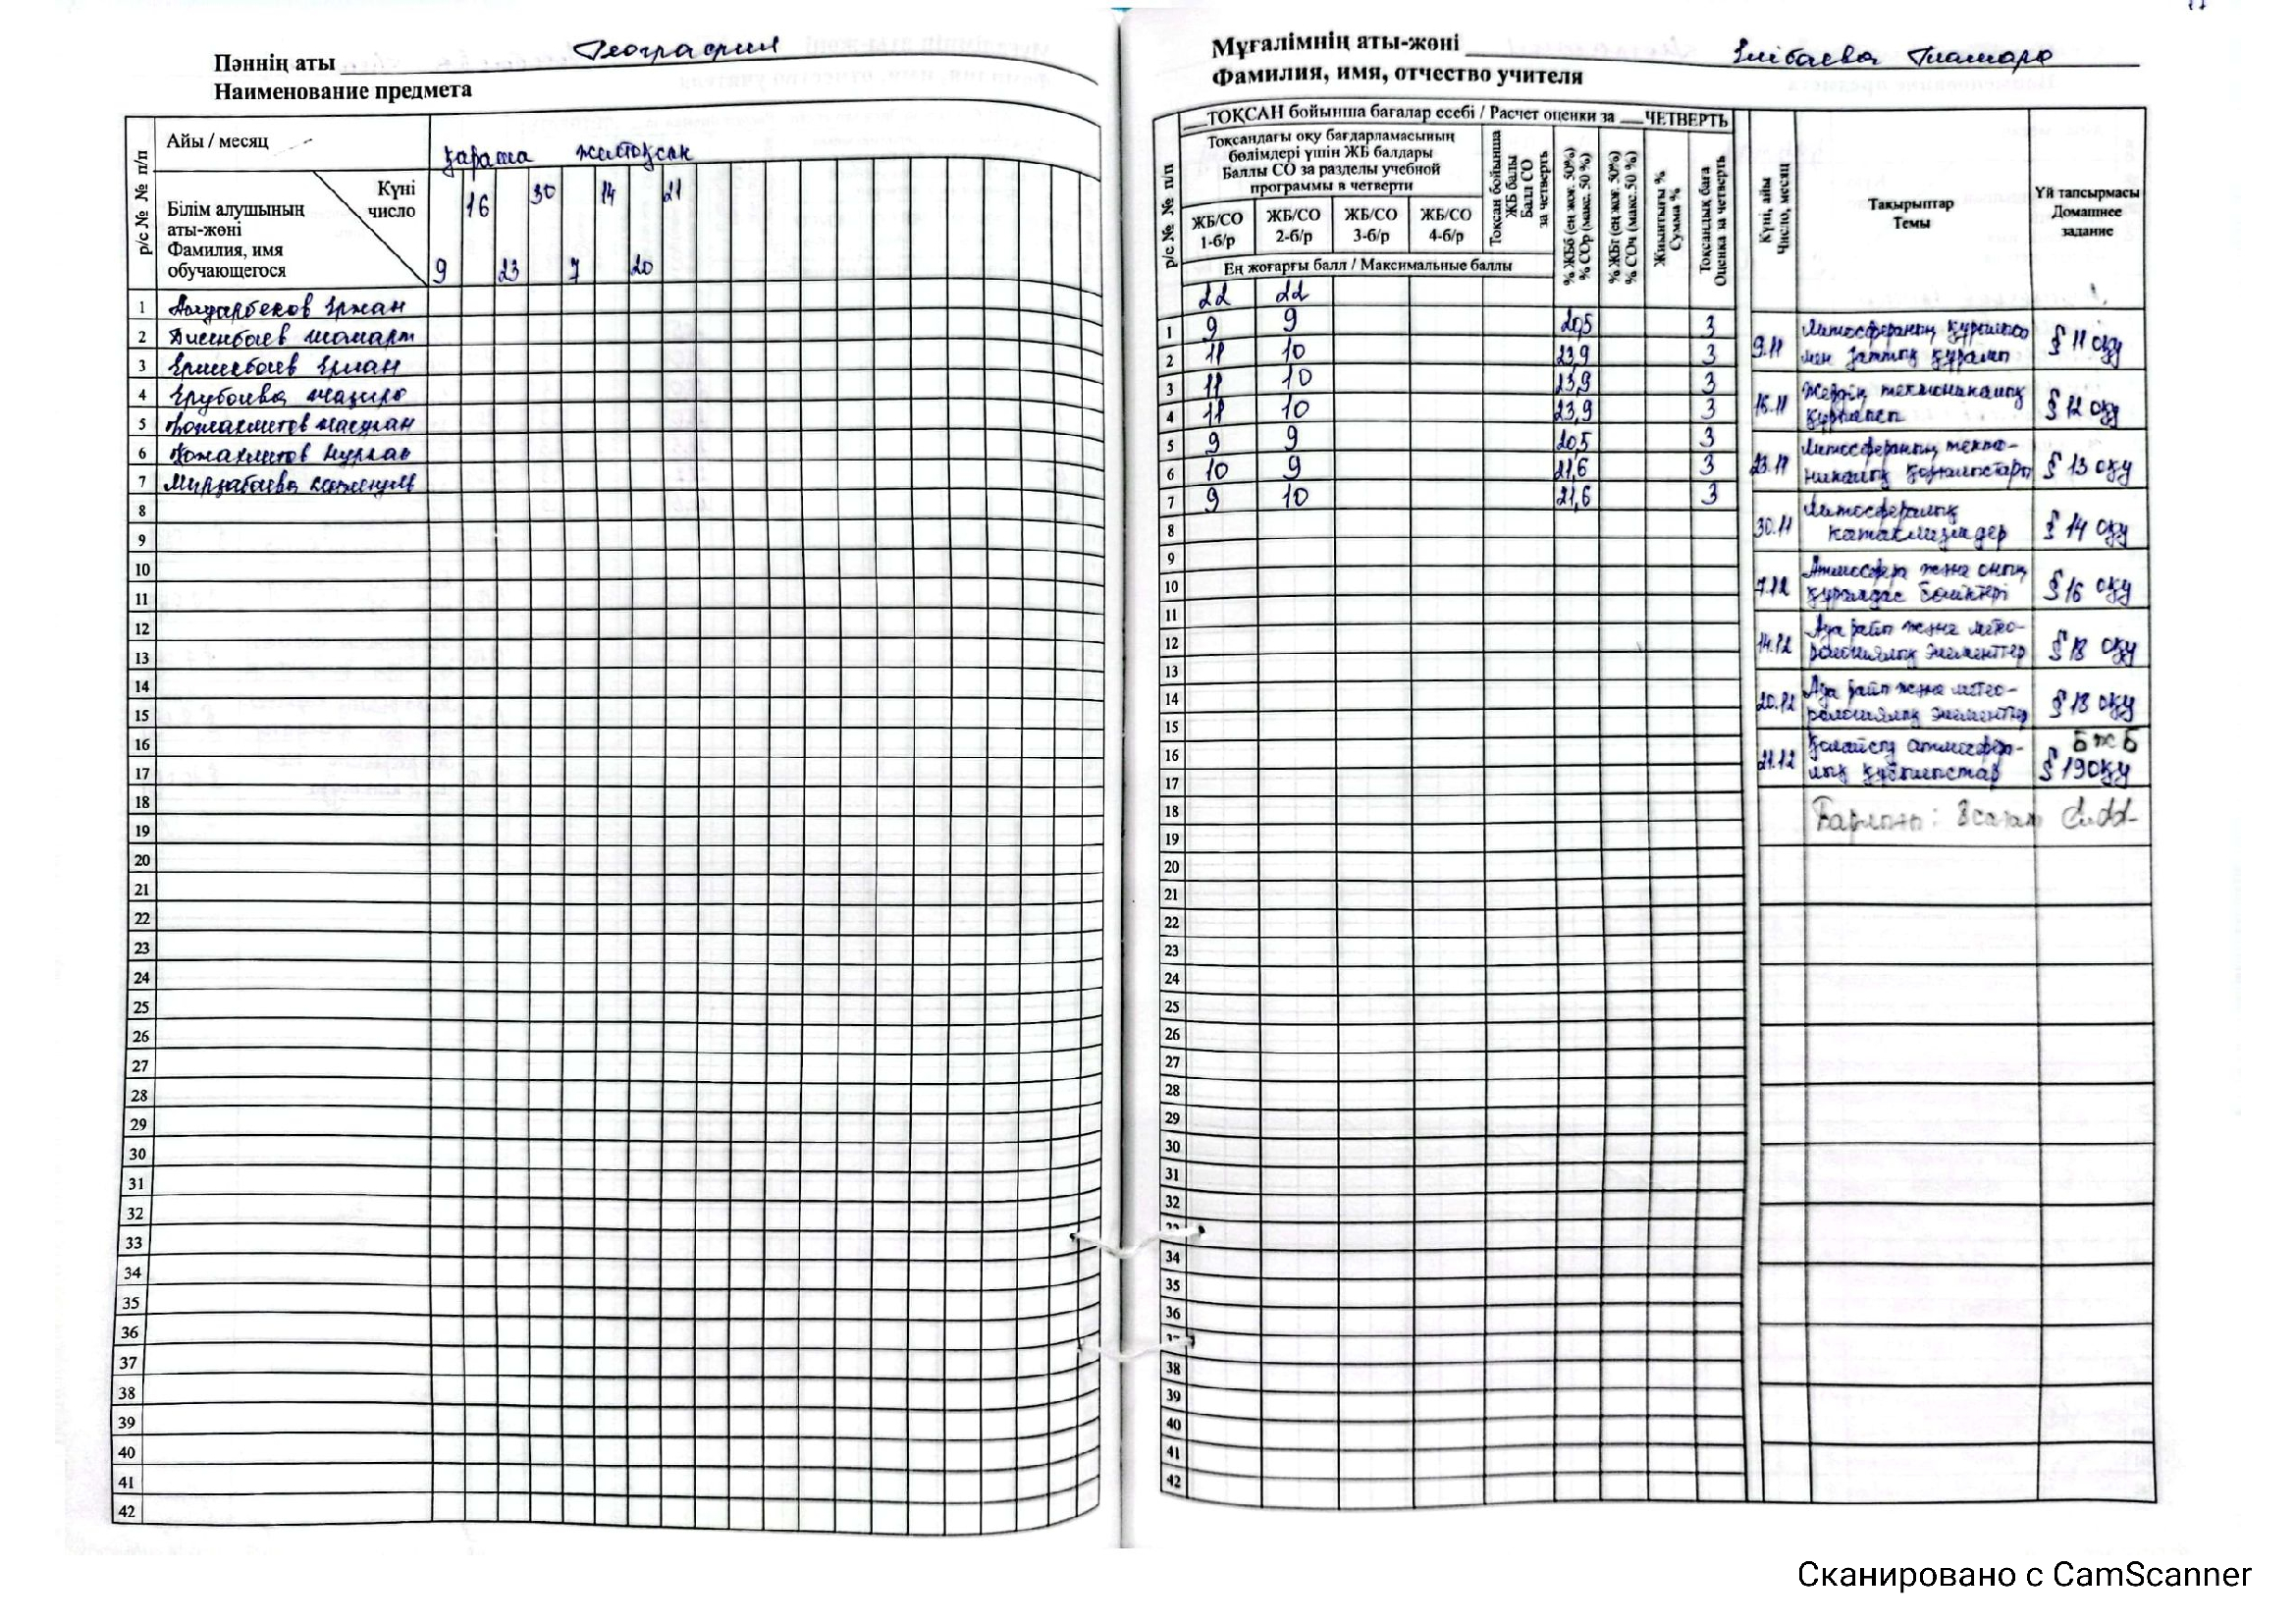 Пәннің аты География
Наименование предмета
р/с № № п/п
Айы / месяц
қараша желтоқсан
Күні
число
Білім алушының
аты-жөні
Фамилия, имя
обучающегося
16 30 14 21
9 23 7 20
1 Ержан
2
3
4
5
6
7
8
9
10
11
12
13
14
15
16
17
18
19
20
21
22
23
24
25
26
27
28
29
30
31
32
33
34
35
36
37
38
39
40
41
42
Мұғалімнің аты-жөні
Фамилия, имя, отчество учителя
__ТОҚСАН бойынша бағалар есебі / Расчет оценки за __ЧЕТВЕРТЬ
р/с № № п/п
Тоқсандағы оқу бағдарламасының
бөлімдері үшін ЖБ балдары
Баллы СО за разделы учебной
программы в четверти
ЖБ/СО ЖБ/СО ЖБ/СО ЖБ/СО
1-б/р 2-б/р 3-б/р 4-б/р
Тоқсан бойынша
ЖБ балы
Балл СО
за четверть
% ЖБб (ең жоғ. 50%)
% СОр (макс. 50 %)
% ЖБт (ең жоғ. 50%)
% СОч (макс. 50 %)
Жиынтығы %
Сумма %
Тоқсандық баға
Оценка за четверть
Ең жоғарғы балл / Максимальные баллы
22 22
1 9 9 20,5 3
2 11 10 23,9 3
3 11 10 23,9 3
4 11 10 23,9 3
5 9 9 20,5 3
6 10 9 21,6 3
7 9 10 21,6 3
8
9
10
11
12
13
14
15
16
17
18
19
20
21
22
23
24
25
26
27
28
29
30
31
32
34
35
36
38
39
40
41
42
Күні, айы
Число, месяц
Тақырыптар
Темы
Үй тапсырмасы
Домашнее
задание
9.11 Литосфераның құрылысы § 11 оқу
мен заттық құрамы
16.11 Жердің тектоникалық § 12 оқу
23.11 Литосфераның текто- § 13 оқу
никалық қозғалыстары
30.11 Литосфералық § 14 оқу
катаклизмдер
7.12 Атмосфера және оның § 16 оқу
құрамдас бөліктері
14.12 Ауа райы және метео- § 18 оқу
рологиялық элементтер
20.12 Ауа райы және метео- § 18 оқу
рологиялық элементтер
21.12 Қолайсыз атмосфера- БжБ
лық құбылыстар § 19 оқу
Барлығы: 8 сағат
Сканировано с CamScanner